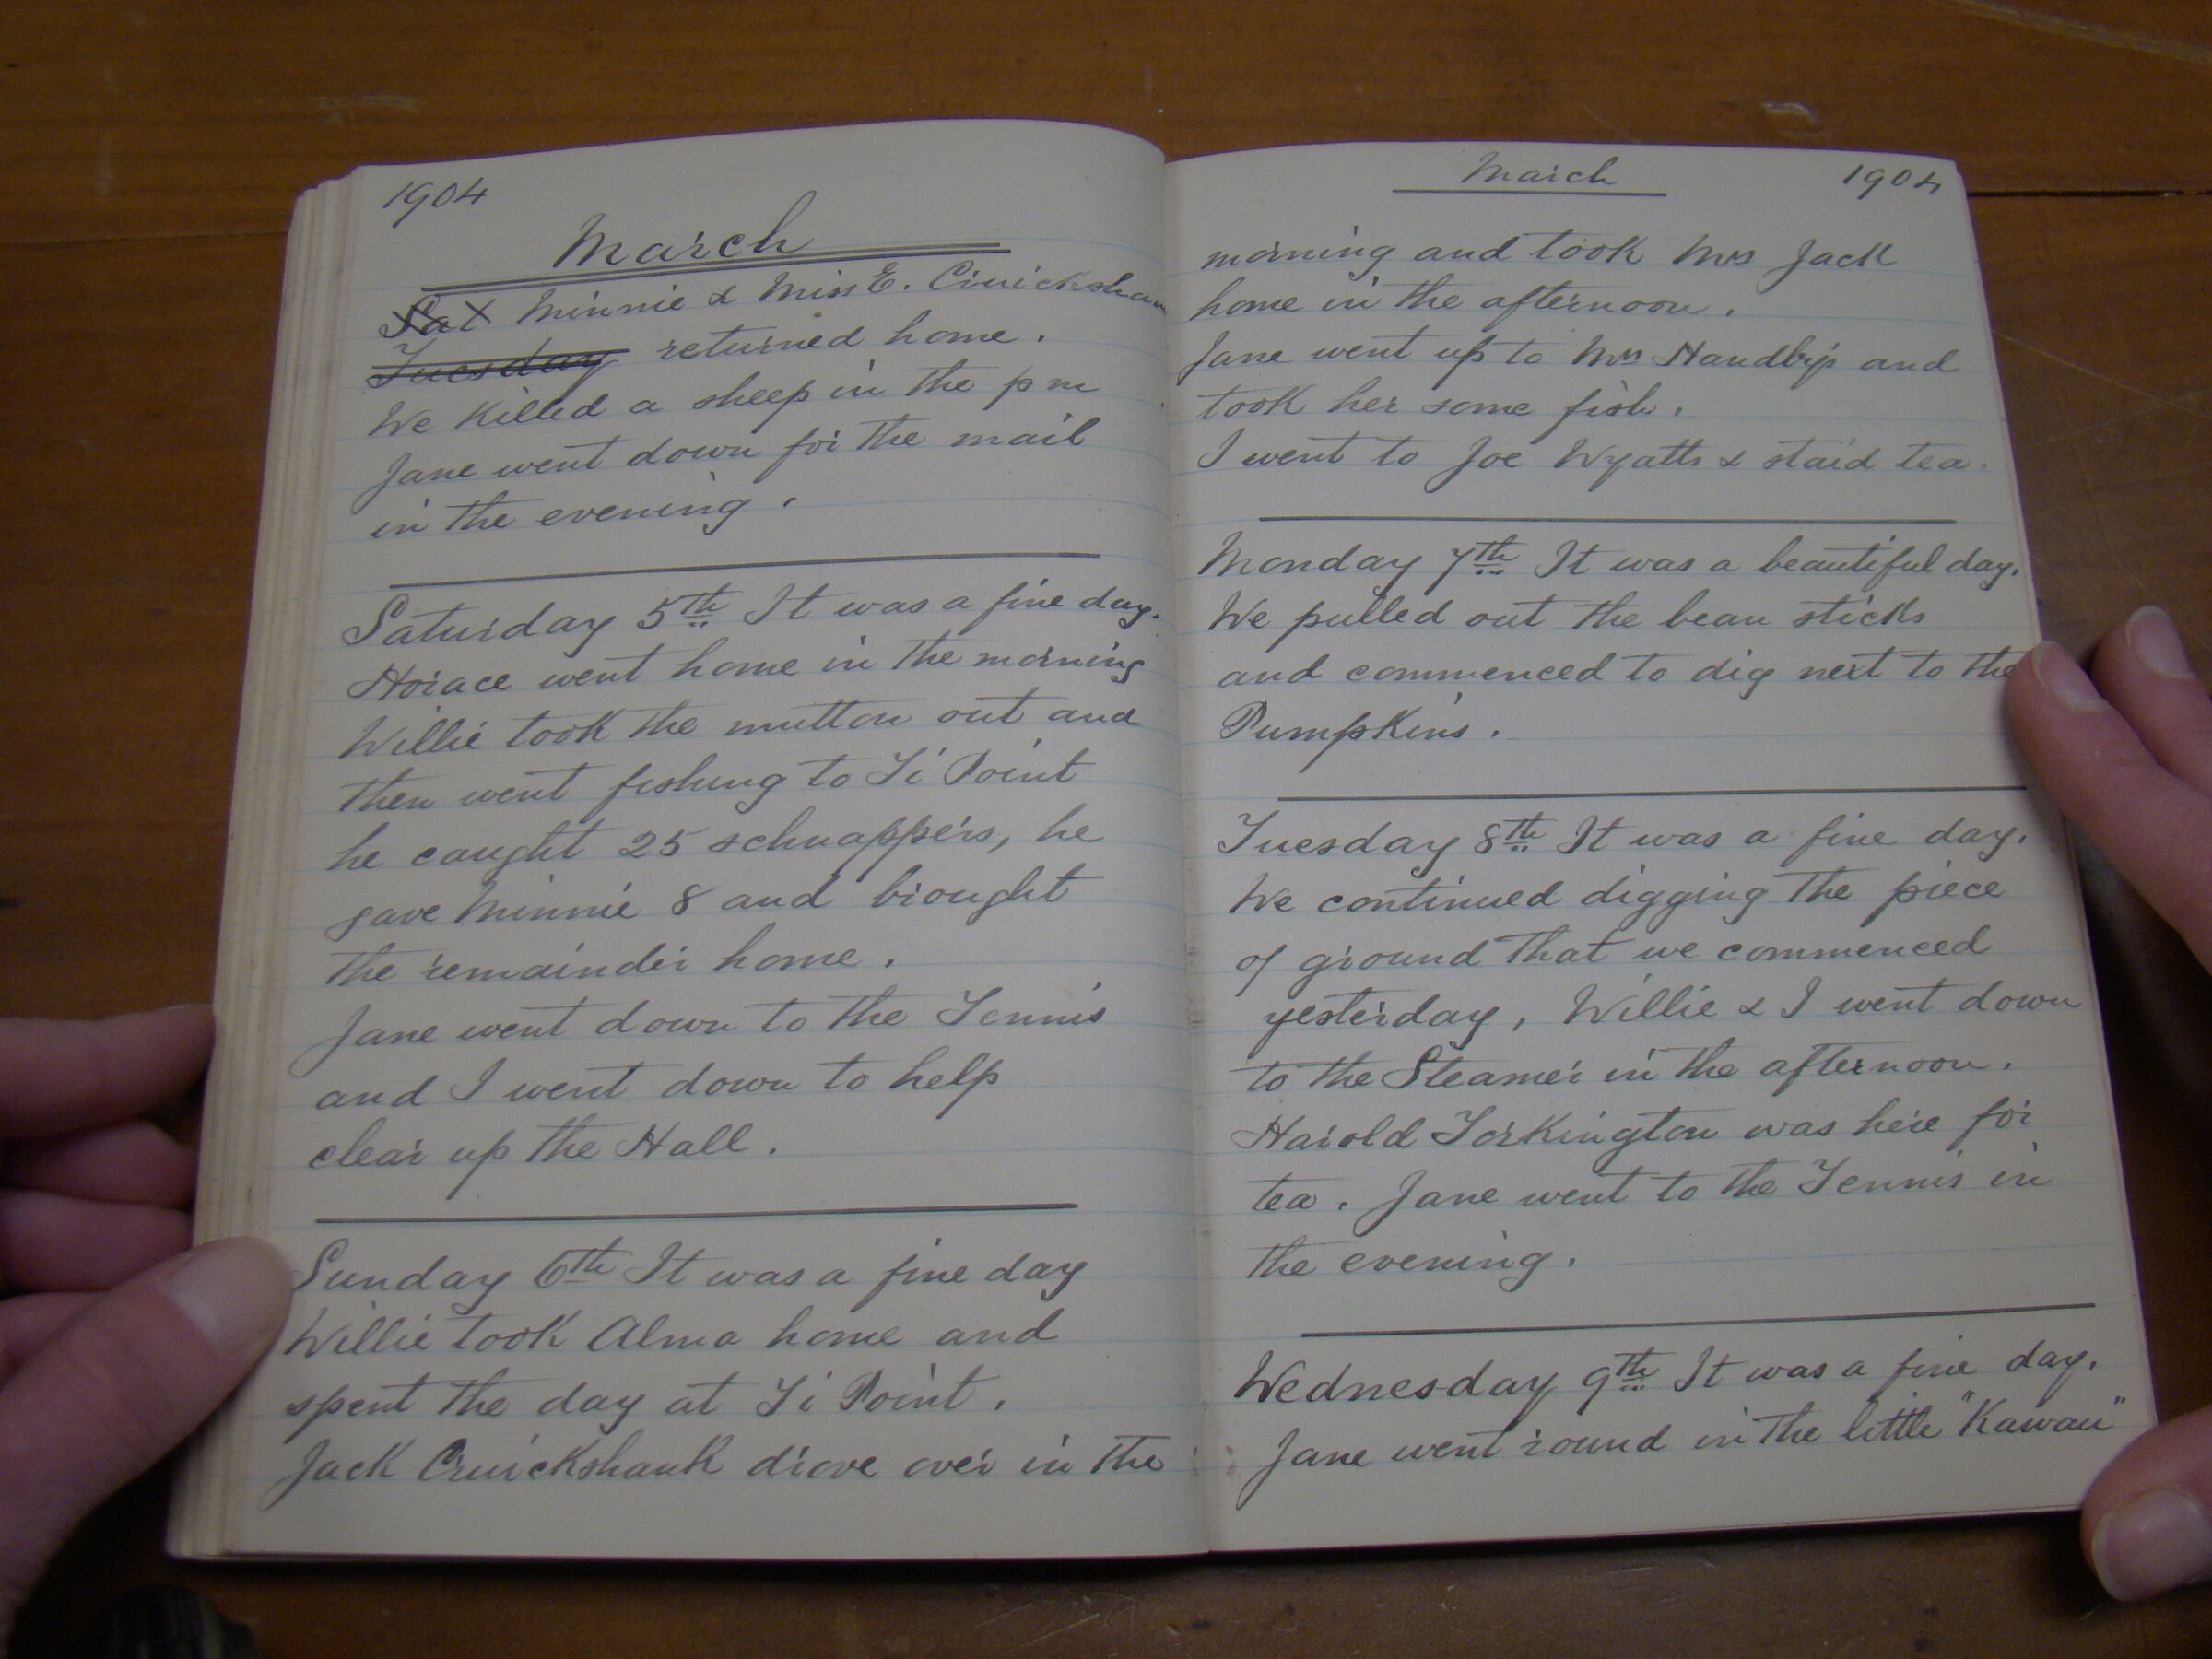 1904
March
Sat Minnie & Miss E. Cruickshan
Tuesday returned home.
We Killed a sheep in the pm
Jane went down for the mail
in the evening.
Saturday 5th It was a fine day.
Horace went home in the morning
Willie took the mutton out and
then went fishing to Ti Point
he caught 25 schnappers, he
gave Minnie 8 and brought
the remainder home.
Jane went down to the Tennis
and I went down to help
clear up the Hall.
Sunday 6th It was a fine day
Willie took Alma home and
spent the day at Ti Point.
Jack Cruickshank drove over in the
March 1904
morning and took Mrs Jack
home in the afternoon.
Jane went up to Mrs and
took her some fish.
I went to Joe Wyatts & staid tea.
Monday 7th It was a beautiful day.
We pulled out the bean sticks
and commenced to dig next to the
Pumpkins.
Tuesday 8th It was a fine day.
We continued digging the piece
of ground that we commenced
yesterday, Willie & I went down
to the Steamer in the afternoon.
Harold Torkington was here for
tea. Jane went to the Tennis in
the evening.
Wednesday 9th It was a fine day.
Jane went round in the little "Kawau"